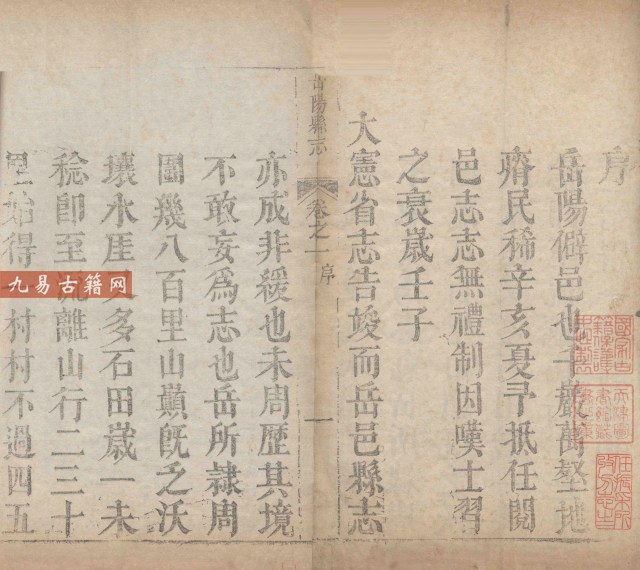 序
岳陽僻邑也千巖萬壑地
瘠民稀辛亥夏予抵任閱
邑志志無禮制因嘆士習
之衰歲壬子
大憲省志告竣而岳邑縣志
岳陽縣志 卷之一 序 一
亦成非緩也未周歷其境
不敢妄爲志也岳所隷周
圍幾八百里山巔旣乏沃
壤水崖多石田歲一未
稔卽至流離山行二三十
里始得一村村不過四五
九易古籍网